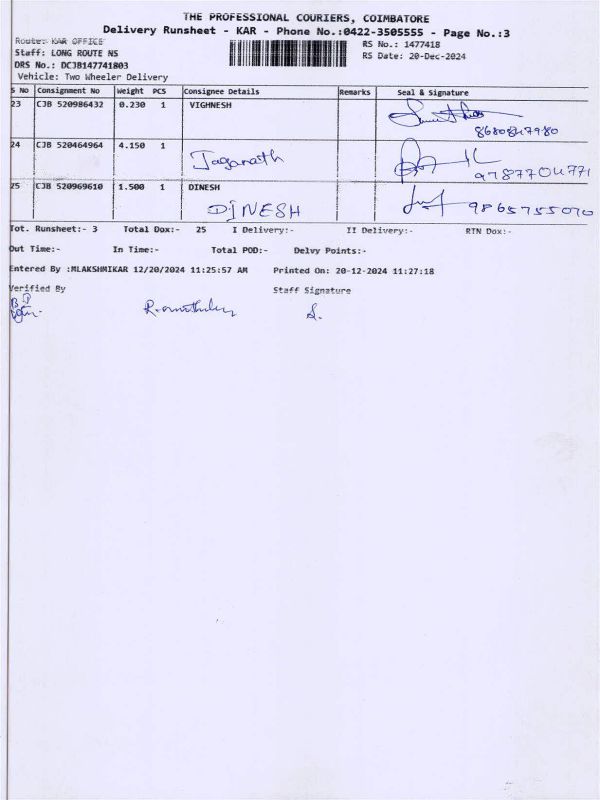 THE PROFESSIONAL COURIERS, COIMBATORE
Delivery Runsheet - KAR - Phone No.:0422-3505555 - Page No.:3
Route: KAR OFFICE
RS No.: 1477418
Staff: LONG ROUTE NS
RS Date: 20-Dec-2024
DRS No.: DCJB147741803
Vehicle: Two Wheeler Delivery
S No Consignment No Weight PCS Consignee Details Remarks Seal & Signature
23 CJB 520986432 0.230 1 VIGHNESH
8680847980
24 CJB 520464964 4.150 1
Jaganath
9787704771
25 CJB 520969610 1.500 1 DINESH
DINESH 9865755070
Tot. Runsheet:- 3 Total Dox:- 25 I Delivery:- II Delivery:- RTN Dox:-
Out Time:- In Time:- Total POD:- Delvy Points:-
Entered By :MLAKSHMIKAR 12/20/2024 11:25:57 AM Printed On: 20-12-2024 11:27:18
Verified By Staff Signature